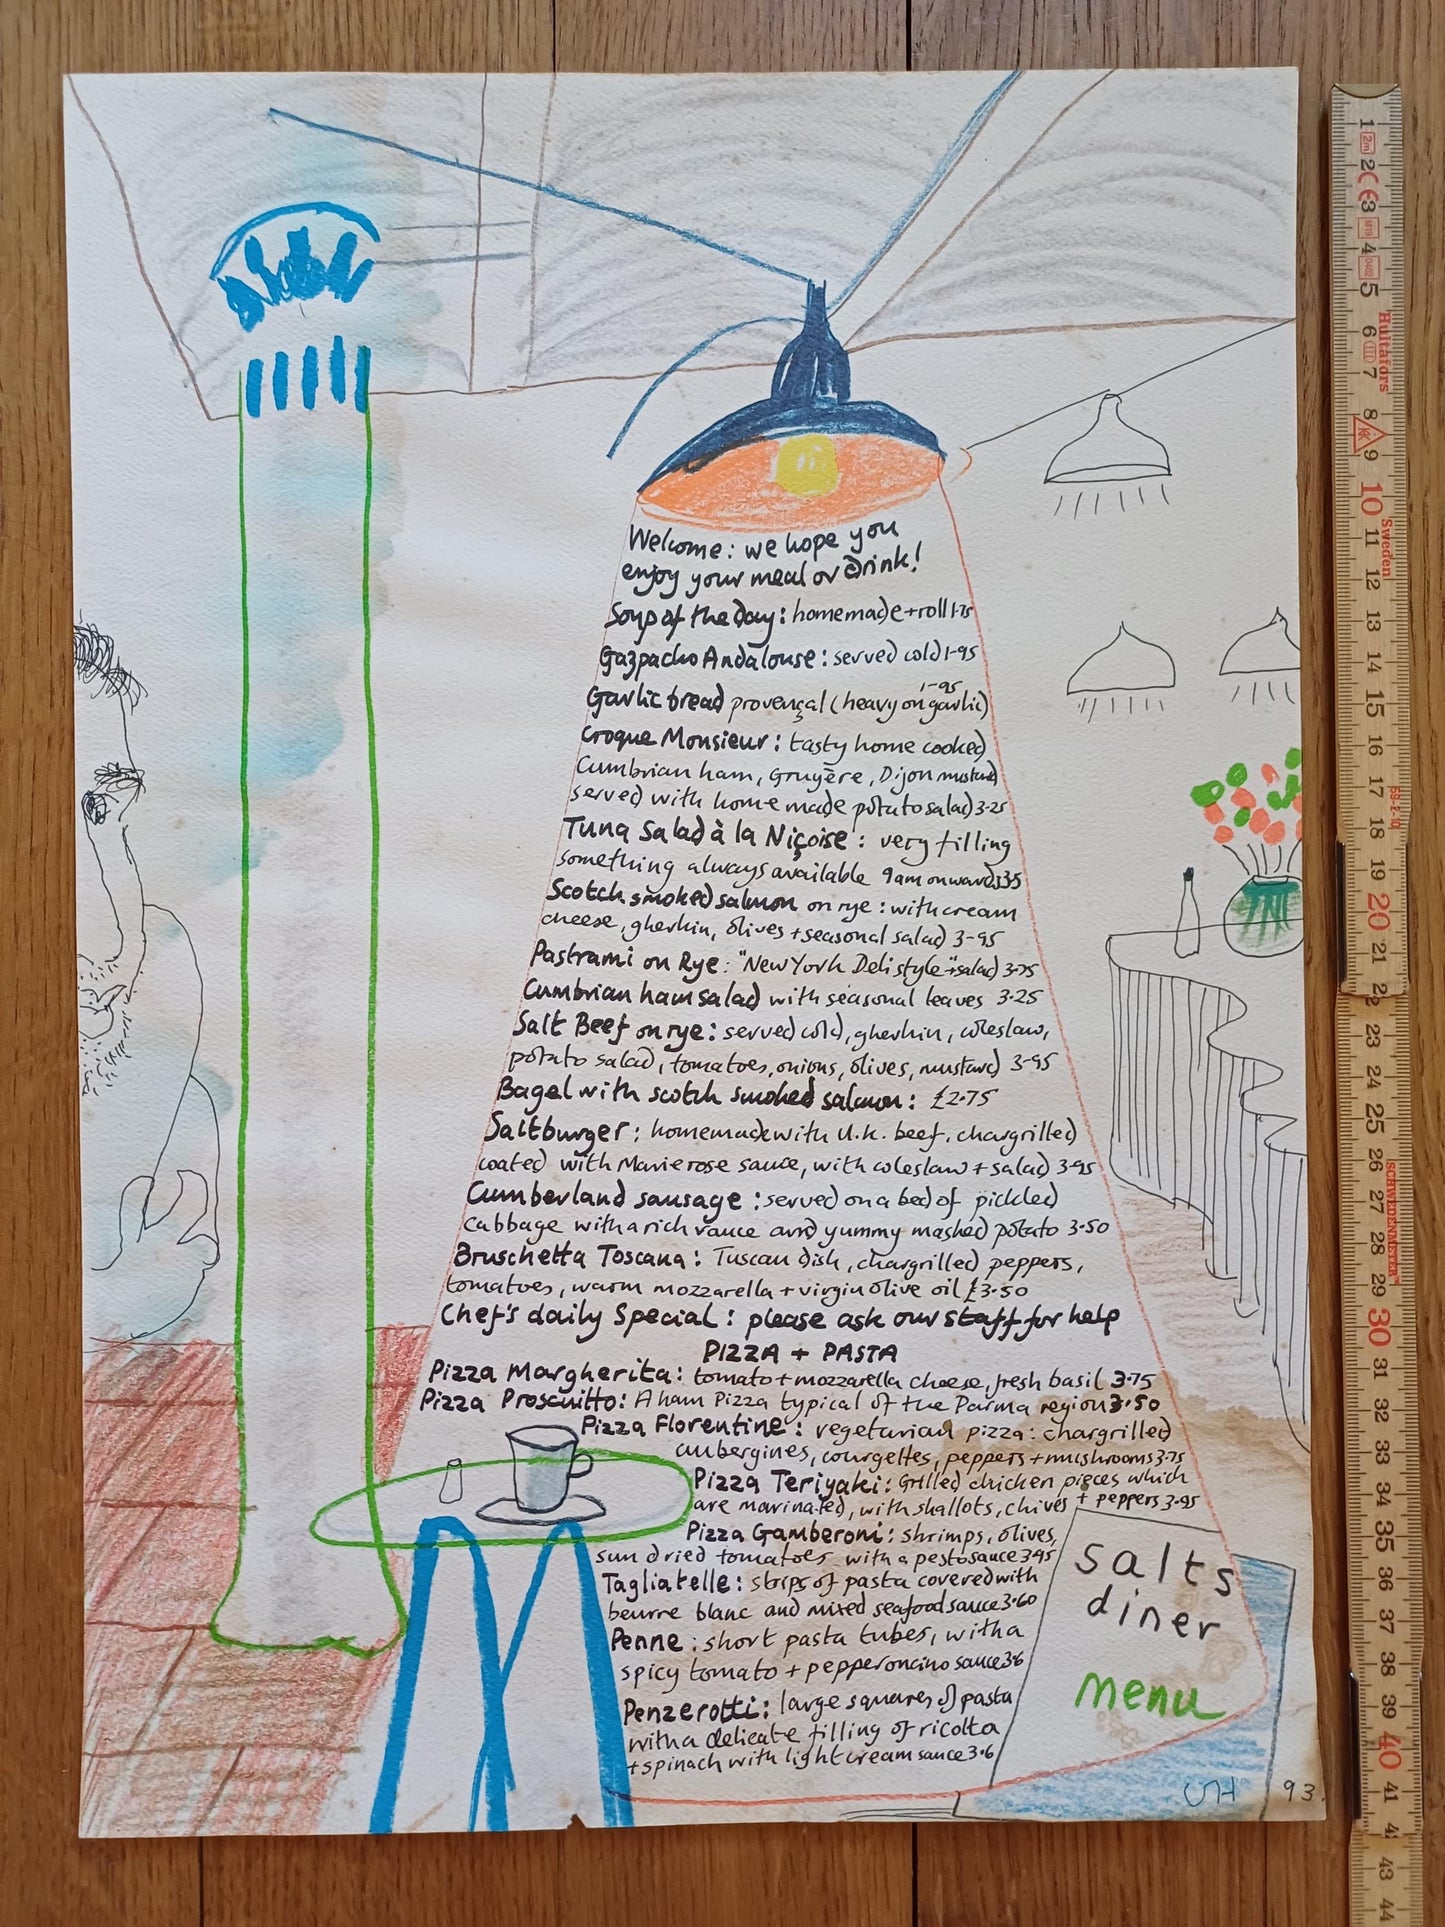 Welcome: we hope you
enjoy your meal or drink!
Soup of the day: homemade + roll 1·75
Gazpacho Andalouse: served cold 1-95
1-95
Garlic bread provençal (heavy on garlic)
Croque Monsieur: tasty home cooked
Cumbrian ham, Gruyère, Dijon mustard
served with home made potato salad 3·25
Tuna Salad à la Niçoise: very filling
something always available 9am onwards
Scotch smoked salmon on rye: with cream
cheese, gherkin, olives + seasonal salad 3-95
Pastrami on Rye: "New York Deli style" + salad 3·75
Cumbrian ham salad with seasonal leaves 3·25
Salt Beef on rye: served cold, gherkin, coleslaw,
potato salad, tomatoes, onions, olives, mustard 3-95
Bagel with scotch smoked salmon: £2·75
Saltburger: homemade with U.K. beef, chargrilled
coated with Marie rose sauce, with coleslaw + salad 3-95
Cumberland sausage: served on a bed of pickled
cabbage with a rich sauce and yummy mashed potato 3·50
Bruschetta Toscana: Tuscan dish, chargrilled peppers,
tomatoes, warm mozzarella + virgin olive oil £3·50
Chef's daily Special: please ask our staff for help
PIZZA + PASTA
Pizza Margherita: tomato + mozzarella cheese, fresh basil 3·75
Pizza Proscuitto: A ham Pizza typical of the Parma region 3·50
Pizza Florentine: vegetarian pizza: chargrilled
aubergines, courgettes, peppers + mushrooms 3·75
Pizza Teriyaki: Grilled chicken pieces which
are marinated, with shallots, chives + peppers 3·95
Pizza Gamberoni: shrimps, olives,
sun dried tomatoes with a pesto sauce 3·95
Tagliatelle: strips of pasta covered with
beurre blanc and mixed seafood sauce 3·60
Penne: short pasta tubes, with a
spicy tomato + pepperoncino sauce 3·6
Penzerotti: large squares of pasta
with a delicate filling of ricotta
+ spinach with light cream sauce 3·6
salts
diner
menu
DH 93.
1 2 3 4 5 6 7 8 9 10 11 12 13 14 15 16 17 18 19 20 21 22 23 24 25 26 27 28 29 30 31 32 33 34 35 36 37 38 39 40 41 43 44
2m
CE
Hultafors
Sweden